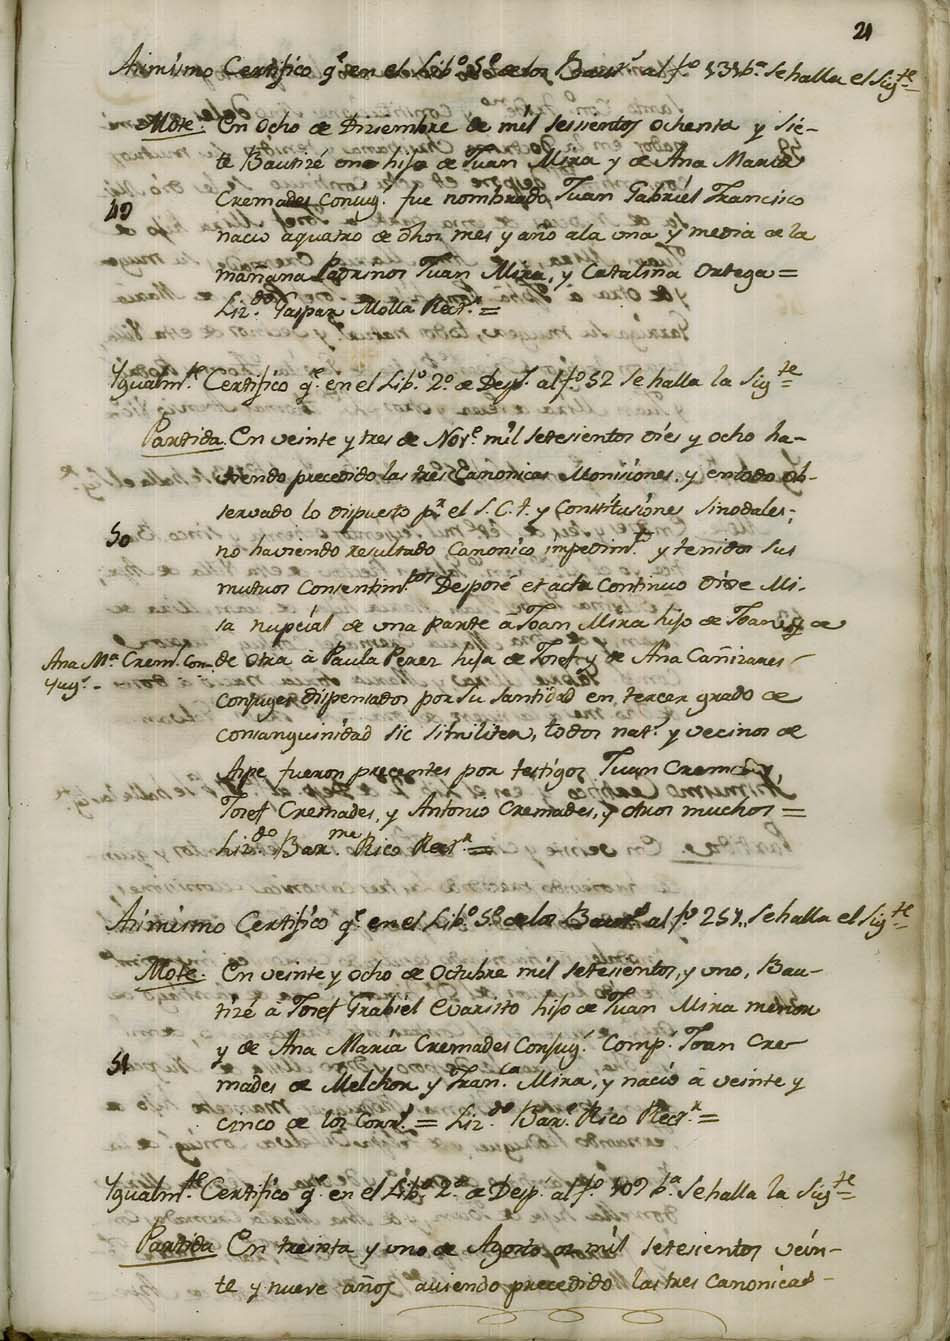 21
Asimismo Certifico qe. en el Libo. 5o. de los Bautˢ. al fo. 131ba. se halla el Sigte.
Mote. En Ocho de Disiembre de mil seissientos ochenta y sie-
te Bautizé one hijo de Juan Mira y de Ana Maria
49
Cremades Conyug. fue nombrado Juan Gabriel Francisco
nacio a quatro de dhos mes y año a la una y media de la
mañana Padrinos Juan Mira, y Catalina Ortega =
Lizdo. Gaspar Molla Rectr. =
Ygualmte. Certifico qe. en el Libo. 2o. de Desps. al fo. 52 se halla la Sigte
Partida. En veinte y tres de Nove. mil setesientos dies y ocho ha-
viendo precedido las tres Canonicas Monisiones, y en todo ob-
servado lo dispuesto pr. el S. C. t. y Constitusiones Sinodales;
50
no haviendo resultado Canonico impedimto. y tenidos sus
mutuos Consentimtos. Desposé et acta continuo dixe Mi-
sa nupcial de una parte â Joan Mira hijo de Joan y de
Ana Ma. Crem. Con-
yugs. -
de otra â Paula Perez hija de Josef y de Ana Cañizares
Conyuges dispensados por Su Santidad en tercer grado de
consanguinidad sic similiter, todos nats. y vecinos de
Aspe fueron precentes por testigos Juan Cremades
Josef Cremades, y Antonio Cremades, y otros muchos =
Lizdo. Barme. Rico Rectr. =
Asimismo Certifico qe. en el Libo. 5o. de los Bauts. al fo. 251,, se halla el Sigte
Mote. En veinte y ocho de Octubre mil setesientos, y uno, Bau-
tizé â Josef Grabiel Evaristo hijo de Juan Mira menor
51
y de Ana Maria Cremades Conyugs. Comps. Joan Cre-
mades de Melchor y Franca. Mira, y nacio â veinte y
cinco de los Corrs. = Lizdo. Bare. Rico Rectr. =
Ygualmte. Certifico qe. en el Libo. 2o. de Desp. al fo. 109 ba. se halla la Sigte
Partida En treinta y uno de Agosto de mil setesientos vein-
te y nueve años aviendo precedido las tres Canonicas -